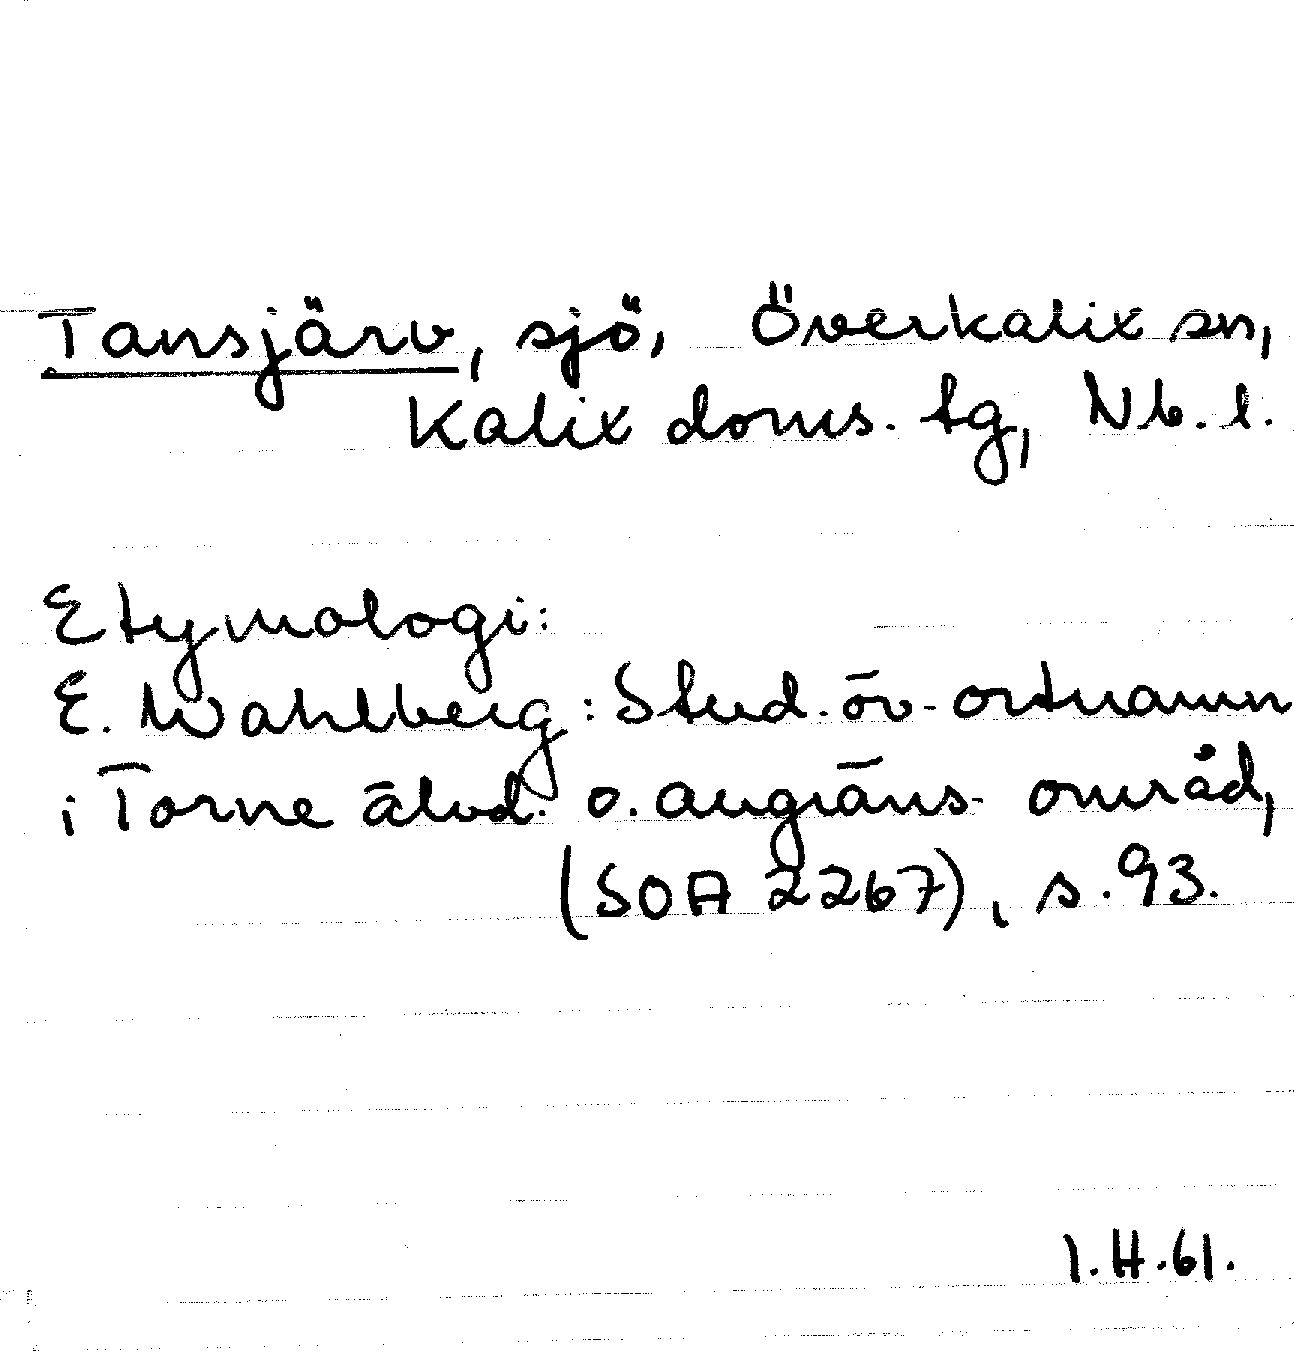 Tansjärv, sjö, Överkalix sn,
Kalix doms. tg, Nb. l.
Etymologi:
E. Wahlberg: Stud. öv. ortnamn
i Torne älvd. o. angräns. områd,
(SOA 2267), s. 93.
I.H.61.